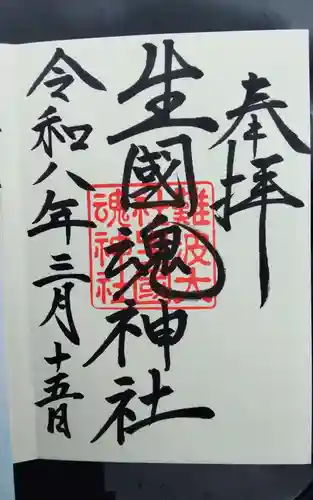 奉拝
生國魂神社
難波大
社生國
魂神社
令和八年三月十五日